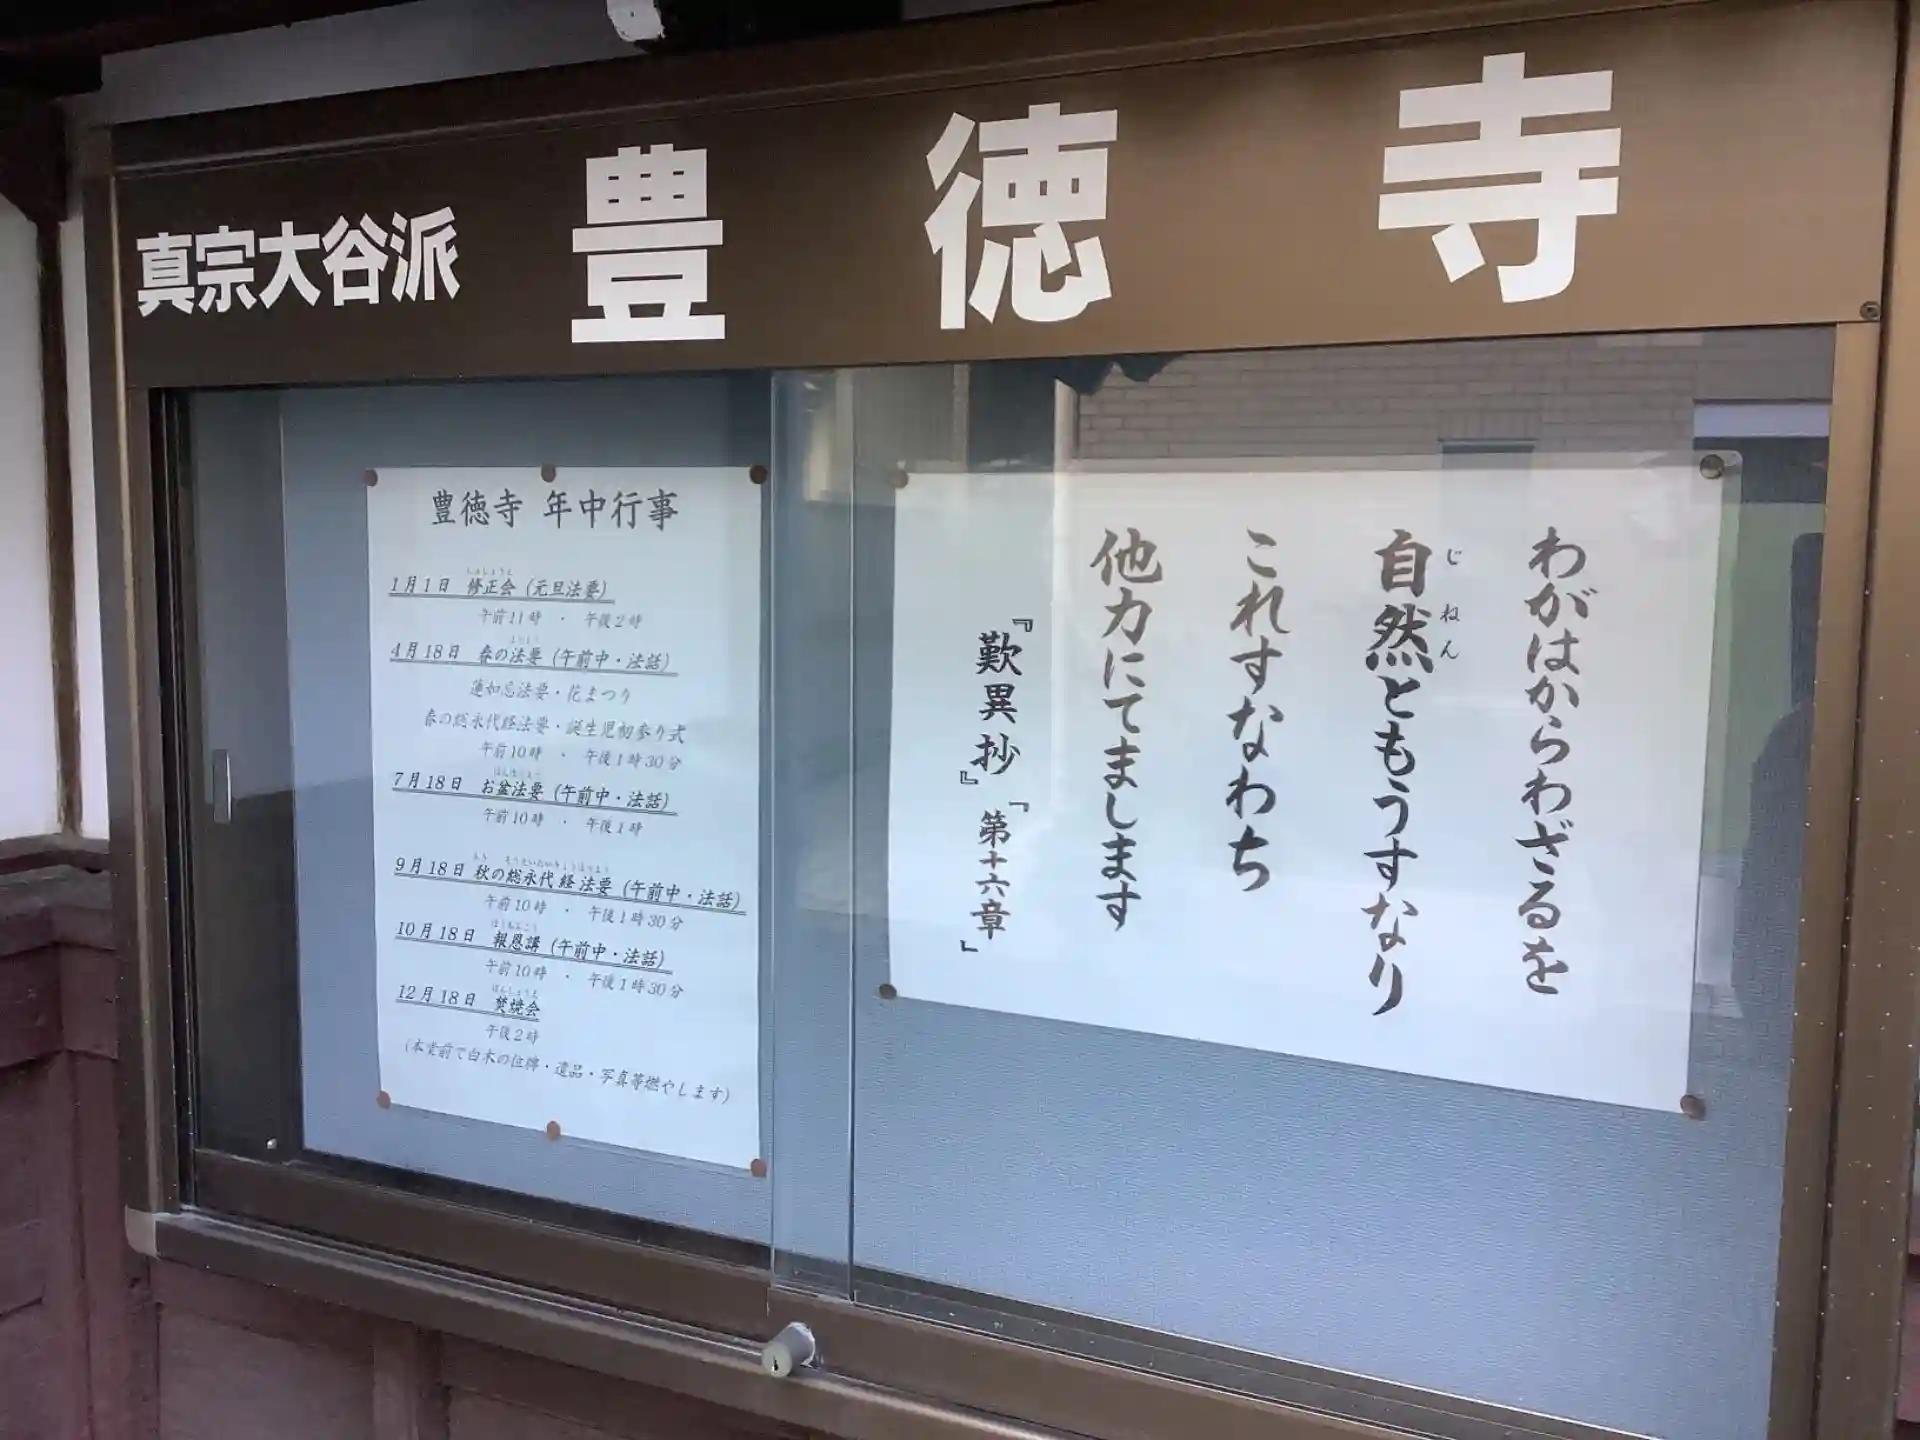 真宗大谷派 豊徳寺
豊徳寺 年中行事
1月1日 修正会(元旦法要)
午前11時 ・ 午後2時
4月18日 春の法要(午前中・法話)
蓮如忌法要・花まつり
春の総永代経法要・誕生児初参り式
午前10時 ・ 午後1時30分
7月18日 お盆法要(午前中・法話)
午前10時 ・ 午後1時
9月18日 秋の総永代経法要(午前中・法話)
午前10時 ・ 午後1時30分
10月18日 報恩講(午前中・法話)
午前10時 ・ 午後1時30分
12月18日 焚焼会
午後2時
(本堂前で白木の位牌・遺品・写真等燃やします)
わがはからわざるを
自然ともうすなり
じねん
これすなわち
他力にてまします
『歎異抄』「第十六章」